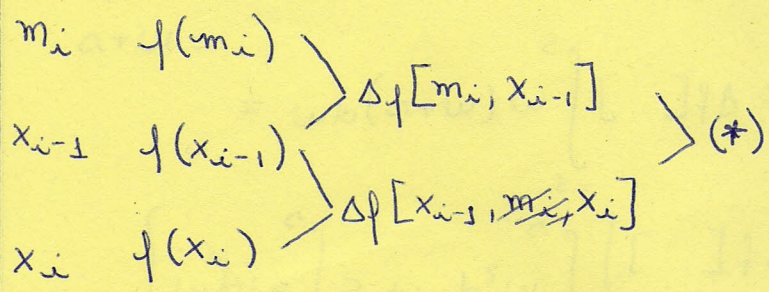 mᵢ f(mᵢ)
Δf[mᵢ, xᵢ₋₁]
xᵢ₋₁ f(xᵢ₋₁) (*)
Δf[xᵢ₋₁, m̶ᵢ̶,̶ xᵢ]
xᵢ f(xᵢ)